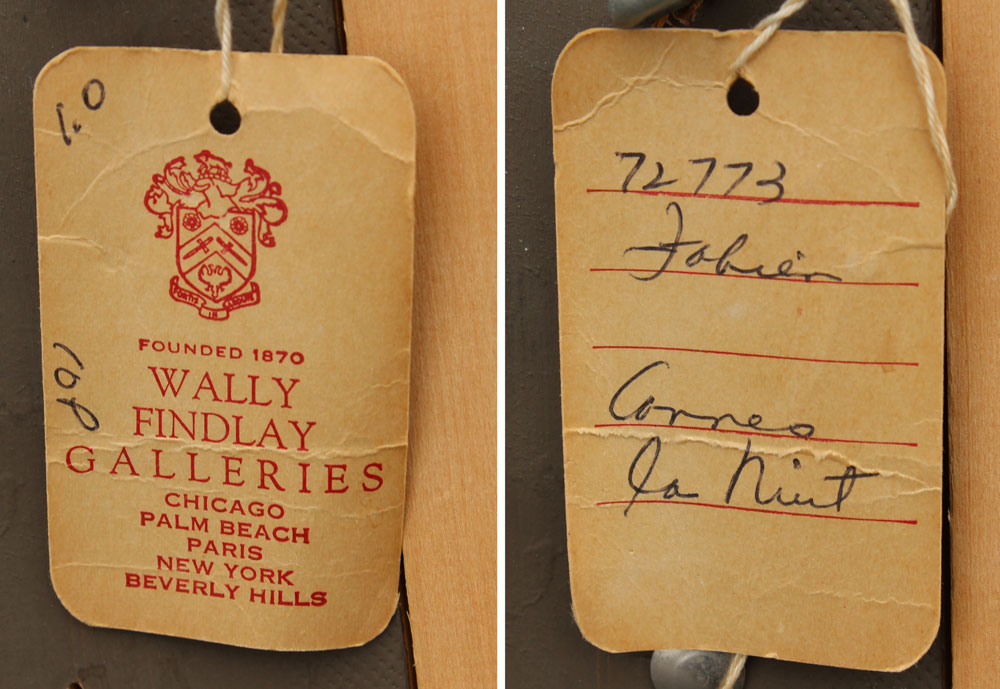 1.0
FOUNDED 1870
WALLY
FINDLAY
GALLERIES
CHICAGO
PALM BEACH
PARIS
NEW YORK
BEVERLY HILLS
72773
Fabien
Cannes
la Nuit